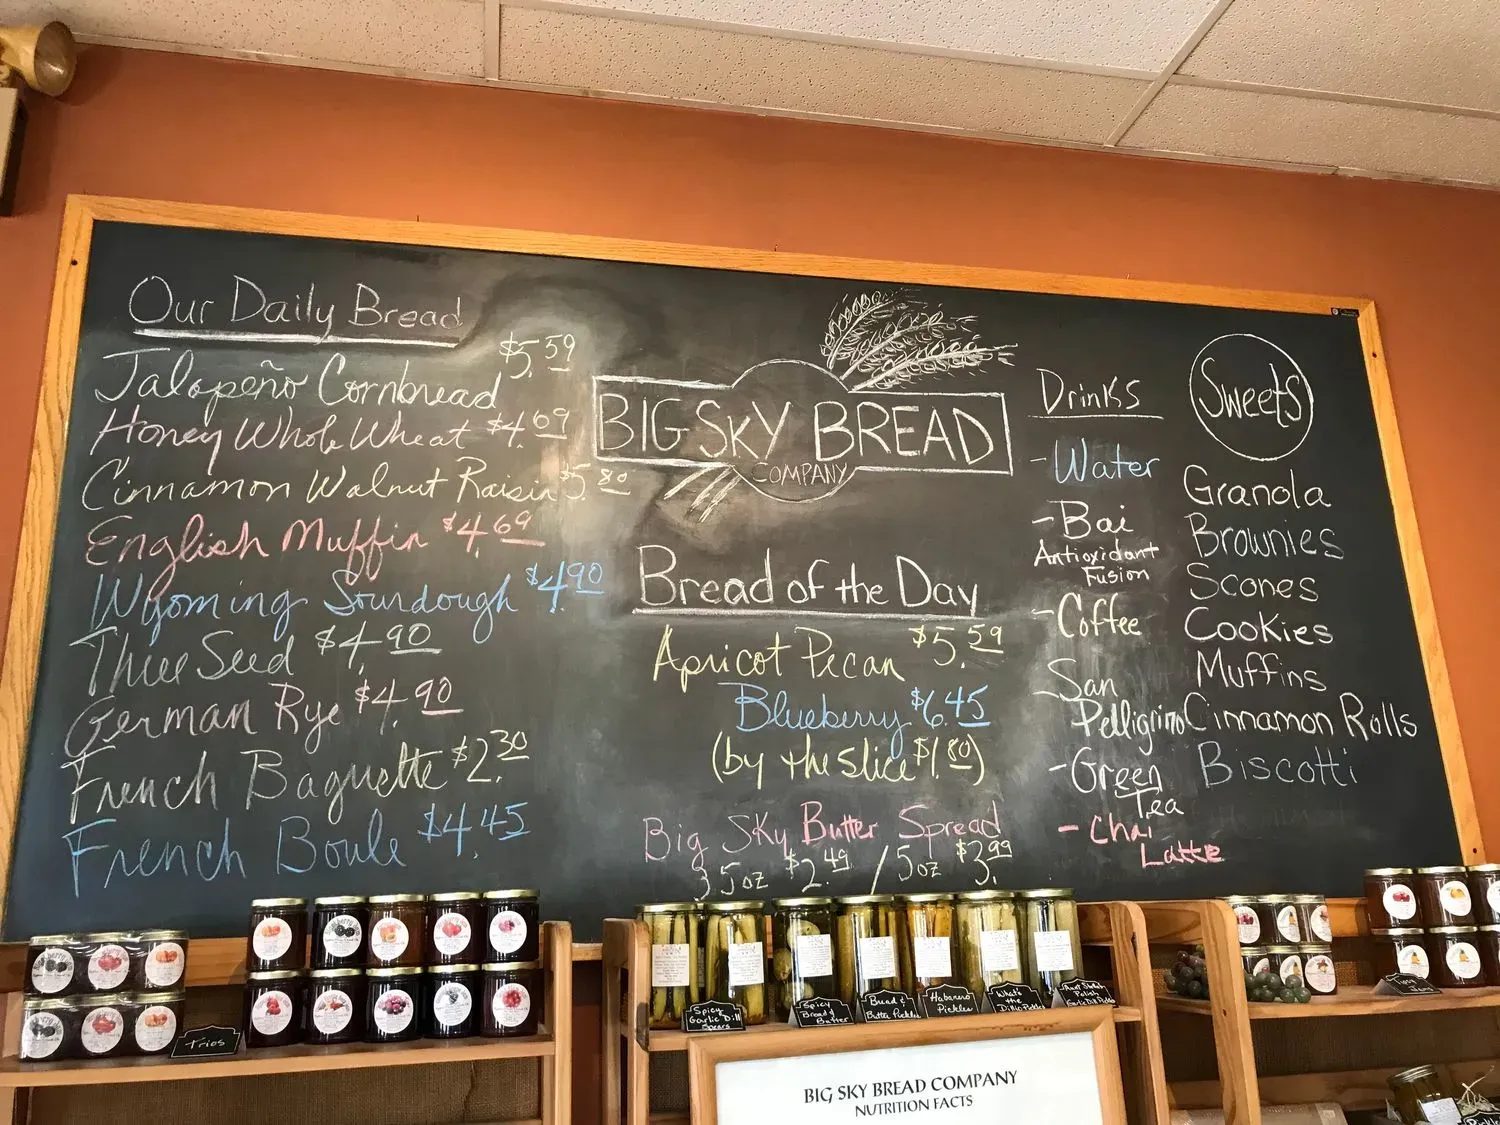 Our Daily Bread
Jalapeño Cornbread $5.59
Honey Whole Wheat $4.69
Cinnamon Walnut Raisin $5.80
English Muffin $4.69
Wyoming Sourdough $4.90
Three Seed $4.90
German Rye $4.90
French Baguette $2.30
French Boule $4.45
BIG SKY BREAD
COMPANY
Bread of the Day
Apricot Pecan $5.59
Blueberry $6.45
(by the slice $1.80)
Big Sky Butter Spread
3.5oz $2.49 / 5oz $3.99
Drinks
- Water
- Bai
Antioxidant
Fusion
- Coffee
- San
Pelligrino
- Green
Tea
- Chai
Latte
Sweets
Granola
Brownies
Scones
Cookies
Muffins
Cinnamon Rolls
Biscotti
Trios
Spicy
Garlic Dill
Spears
Spicy
Bread &
Butter
Bread &
Butter Pickles
Habanero
Pickles
What's
the
BIG SKY BREAD COMPANY
NUTRITION FACTS